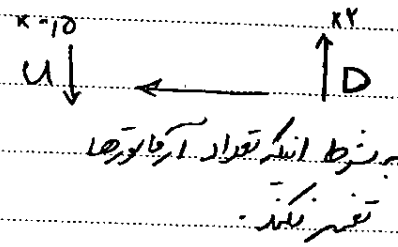 x-10 x2
U ↓ ← ↑ D
به شرط اینکه تعداد آرماتورها
تغییر نکند.